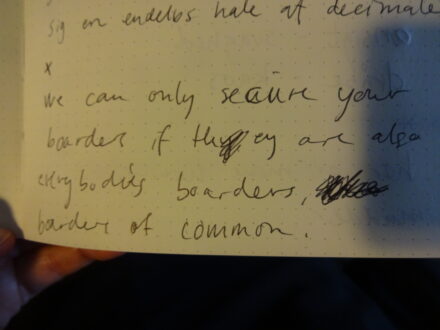 sig en endeløs hale af decimale
x
we can only secure your
boarders if they are also
everybodies boarders,
boarders of common.